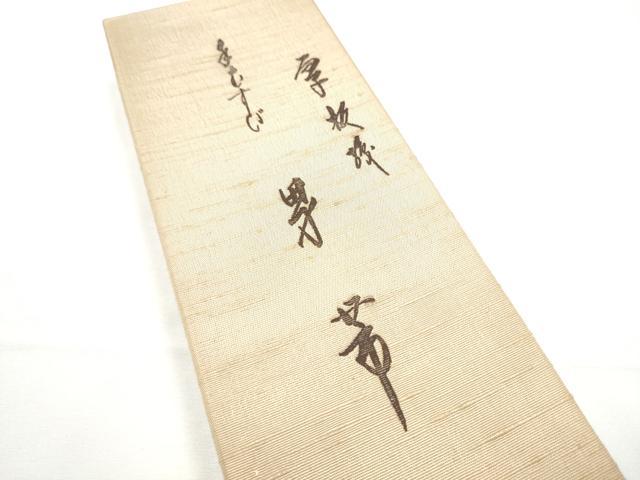 厚板織
男
帯
手むすび